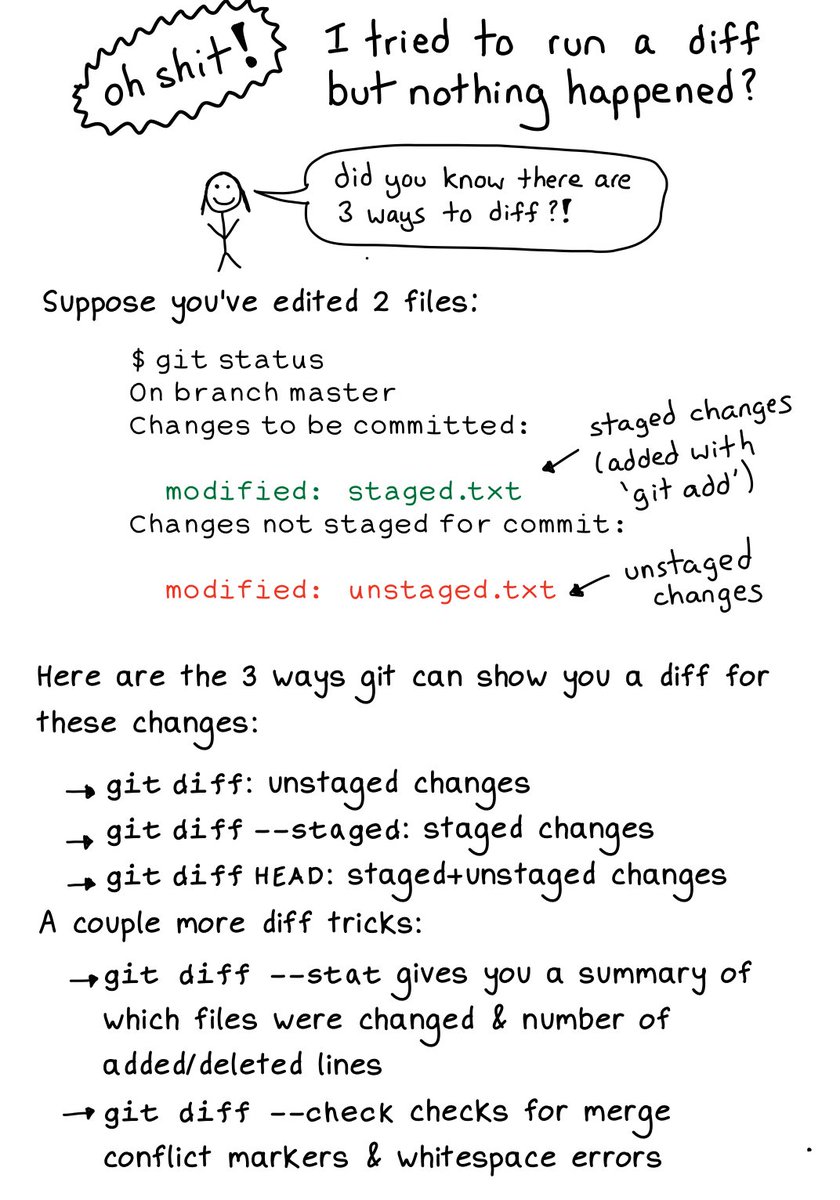 oh shit!
I tried to run a diff
but nothing happened?
did you know there are
3 ways to diff?!
Suppose you've edited 2 files:
$ git status
On branch master
Changes to be committed:
staged changes
(added with
'git add')
modified: staged.txt
Changes not staged for commit:
modified: unstaged.txt
unstaged
changes
Here are the 3 ways git can show you a diff for
these changes:
→ git diff: unstaged changes
→ git diff --staged: staged changes
→ git diff HEAD: staged+unstaged changes
A couple more diff tricks:
→ git diff --stat gives you a summary of
which files were changed & number of
added/deleted lines
→ git diff --check checks for merge
conflict markers & whitespace errors